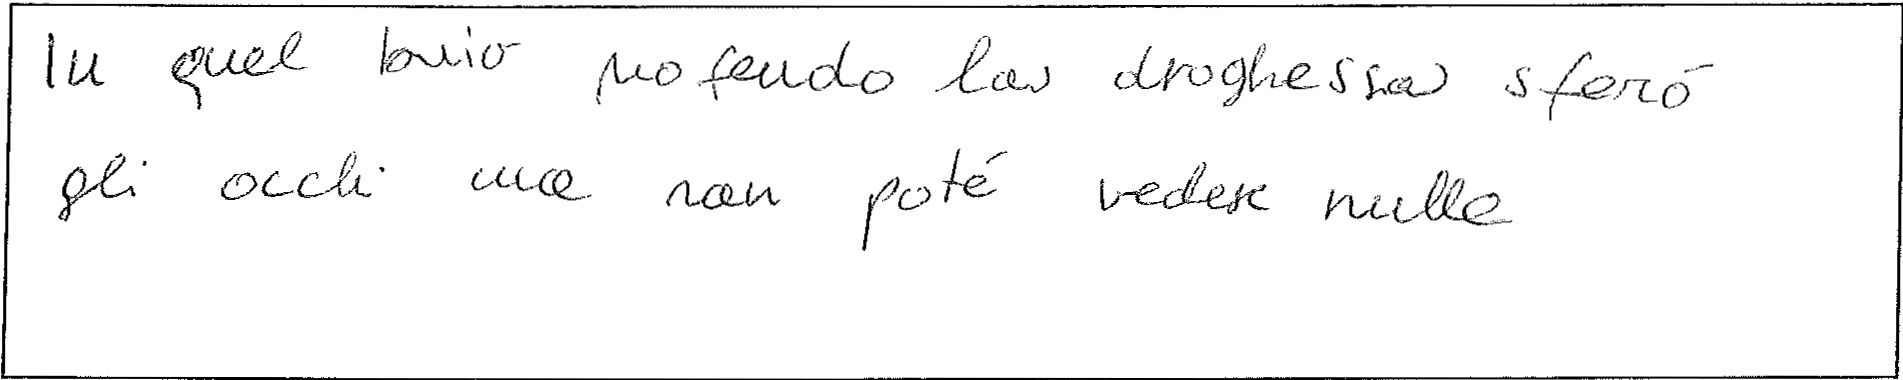 In quel buio profondo la draghessa sferò
gli occhi ma non poté vedere nulla